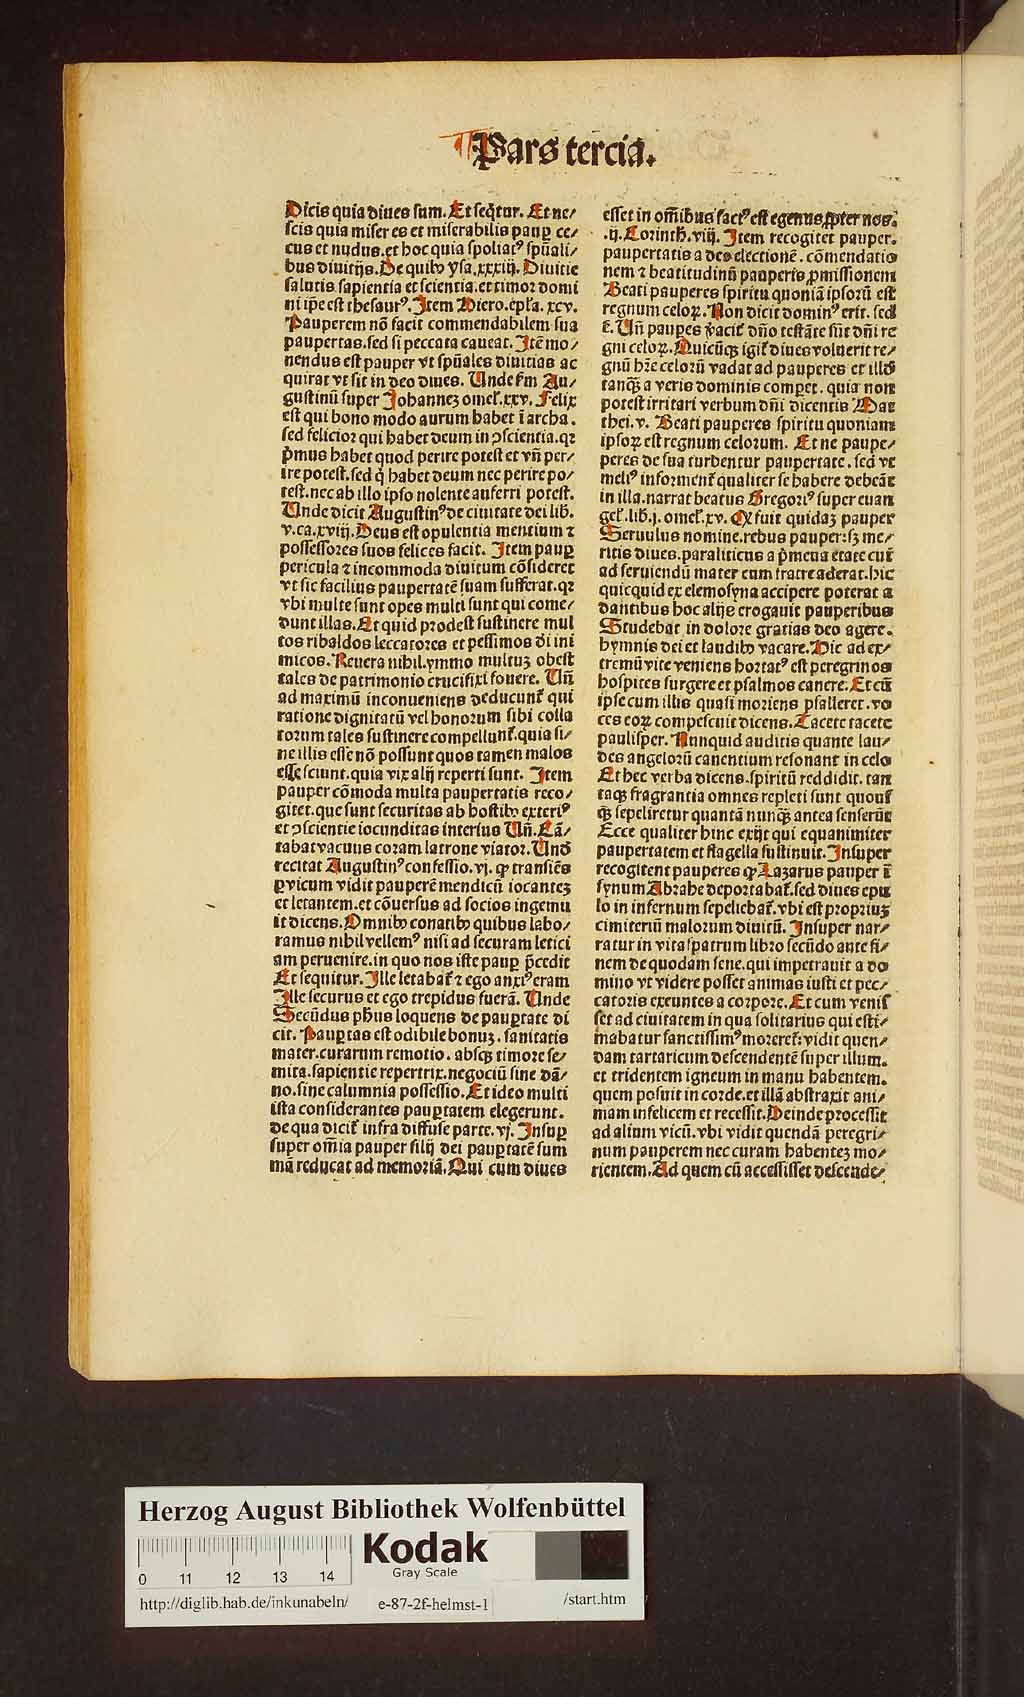 Pars tercia.
Dicis quia diues sum. Et seq̄tur. Et ne⸗
scis quia miser es et miserabilis paup̲ ce⸗
cus et nudus. et hoc quia spoliatꝰ sp̄uali⸗
bus diuitijs. De quibꝰ ysa. xxxiij. Diuitie
salutis sapientia et scientia. et timor domi
ni ip̄e est thesaurꝰ. Item Hiero. ep̄la. xcv.
Pauperem nō facit commendabilem sua
paupertas. sed si peccata caueat. Itē mo⸗
nendus est pauper vt sp̄uales diuitias ac
quirat vt sit in deo diues. Unde ẜm Au⸗
gustinū super Johannez omel̓. xxv. Felix
est qui bono modo aurum habet ī archa.
sed felicior qui habet deum in ↄscientia. qꝛ
p̄mus habet quod perire potest et vn̄ per⸗
ire potest. sed q̓ habet deum nec perire po⸗
test. nec ab illo ipso nolente auferri potest.
Unde dicit Augustinꝰ de ciuitate dei lib.
v. ca. xviij. Deus est opulentia mentium ⁊
possessores suos felices facit. Item paup̲
pericula ⁊ incommoda diuitum cōsideret
vt sic facilius paupertatē suam sufferat. qꝛ
vbi multe sunt opes multi sunt qui come⸗
dunt illas. Et quid prodest sustinere mul
tos ribaldos leccatores et pessimos d̓i ini
micos. Reuera nihil. ymmo multuꝫ obest
tales de patrimonio crucifixi fouere. Un̄
ad maximū inconueniens deducunt̓ qui
ratione dignitatū vel honorum sibi colla
torum tales sustinere compellunt̓. quia si⸗
ne illis esse nō possunt quos tamen malos
esse sciunt. quia vix alij reperti sunt. Item
pauper cōmoda multa paupertatis reco⸗
gitet. que sunt securitas ab hostibꝰ exteriꝰ
et ↄscientie iocunditas interius Un̄. Cā⸗
tabat vacuus coram latrone viator. Unde
recitat Augustinꝰ confessio. vj. ꝙ transiēs
p̲ vicum vidit pauperē mendicū iocantez
et letantem. et cōuersus ad socios ingemu
it dicens. Omnibꝰ conatibꝰ quibus labo⸗
ramus nihil vellemꝰ nisi ad securam letici
am peruenire. in quo nos iste paup̲ p̄cedit
Et sequitur. Ille letabat̓ ⁊ ego anxiꝰ eram
Ille securus et ego trepidus fuerā. Unde
Secūdus ph̄us loquens de paup̲tate di
cit. Paup̲tas est odibile bonuꝫ. sanitatis
mater. curarum remotio. absqꝫ timore se⸗
mita. sapientie repertrix. negociū sine dā⸗
no. sine calumnia possessio. Et ideo multi
ista considerantes paup̲tatem elegerunt.
de qua dicit̓ infra diffuse parte. vj. Insup̲
super om̄ia pauper filij dei paup̲tatē sum
mā reducat ad memoriā. Qui cum diues
esset in om̄ibus factꝰ est egenus ꝓpter nos.
.ij. Corinth. viij. Item recogitet pauper.
paupertatis a deo electionē. cōmendatio
nem ⁊ beatitudinū pauperis ꝓmissionem
Beati pauperes spiritu quoniā ipsorū est
regnum celoꝝ. Non dicit dominꝰ erit. sed
ē. Un̄ paup̲es v̓acit̓ dn̄o testāte sūt dn̄i re
gni celoꝝ. Quicūqꝫ igit̓ diues voluerit re⸗
gnū hr̄e celorū vadat ad pauperes et illd̓
tanqꝫ̄ a veris dominis compet. quia non
potest irritari verbum dn̄i dicentis Mat
thei. v. Beati pauperes spiritu quoniam
ipsoꝝ est regnum celorum. Et ne paupe⸗
peres de sua turbentur paupertate. sed vt
meliꝰ informent̓ qualiter se habere debeāt
in illa. narrat beatus Gregoriꝰ super euan
gel̓. lib. j. omel̓. xv. ꝙ fuit quidaꝫ pauper
Seruulus nomine. rebus pauper: sꝫ me⸗
ritis diues. paraliticus a p̄mena etate cui̓
ad seruiendū mater cum fratre aderat. hic
quicquid ex elemosyna accipere poterat a
dantibus hoc alijs erogauit pauperibus
Studebat in dolore gratias deo agere.
hymnis dei et laudibꝰ vacare. Hic ad ex⸗
tremū vite veniens hortatꝰ est peregrinos
hospites surgere et psalmos canere. Et cū
ipse cum illis quasi moriens psalleret. vo
ces eoꝝ compescuit dicens. Tacete tacete
paulisper. Nunquid auditis quante lau⸗
des angelorū canentium resonant in celo
Et hec verba dicens. spiritū reddidit. tan
taqꝫ fragrantia omnes repleti sunt quousꝗ
qꝫ sepeliretur quantā nunqꝫ̄ antea senserūt
Ecce qualiter hinc exijt qui equanimiter
paupertatem et flagella sustinuit. Insuper
recogitent pauperes ꝙ Lazarus pauper ī
synum Abrahe deportabat̓. sed diues epu
lo in infernum sepeliebat̓. vbi est propriuꝫ
cimiteriū malorum diuitū. Insuper nar⸗
ratur in vitaspatrum libro secūdo ante fi⸗
nem de quodam sene. qui impetrauit a do
mino vt videre posset animas iusti et pec⸗
catoris exeuntes a corpore. Et cum venis
set ad ciuitatem in qua solitarius qui esti⸗
mabatur sanctissimꝰ moreret̓: vidit quen⸗
dam tartaricum descendentē super illum.
et tridentem igneum in manu habentem.
quem posuit in corde. et illā abstraxit ani⸗
mam infelicem et recessit. Deinde processit
ad alium vicū. vbi vidit quendā peregri⸗
num pauperem nec curam habentez mo⸗
rientem. Ad quem cū accessisset descende⸗
Herzog August Bibliothek Wolfenbüttel
Kodak
Gray Scale
0 11 12 13 14
http://diglib.hab.de/inkunabeln/ e-87-2f-helmst-1 /start.htm